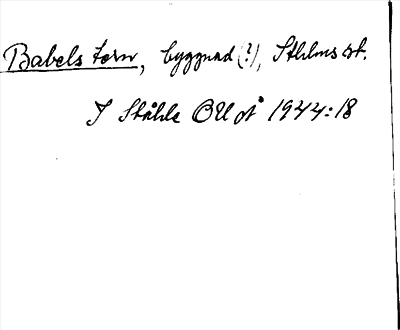 Babels torn, byggnad (?), Sthlms st.
I Ståhle OUÅ 1944:18